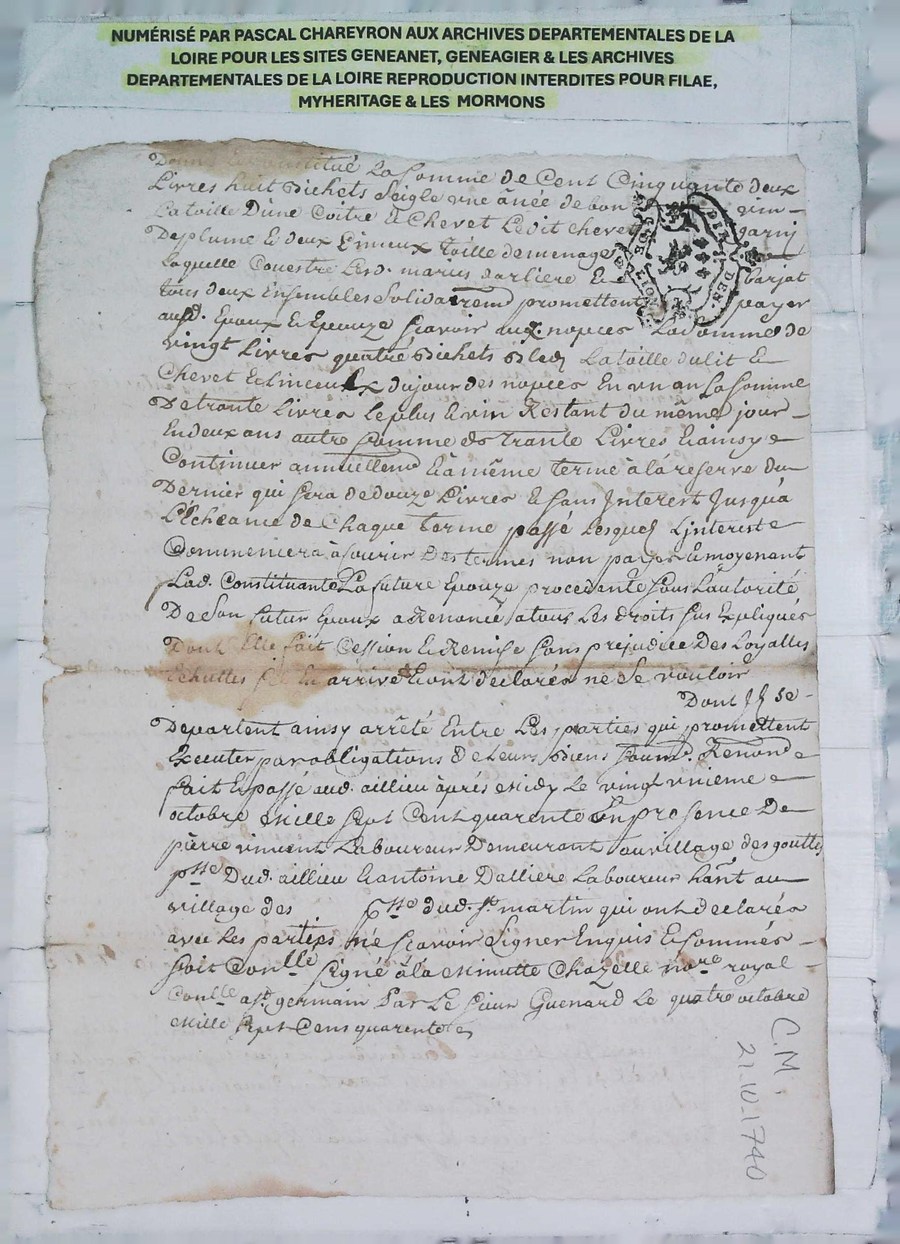 NUMÉRISÉ PAR PASCAL CHAREYRON AUX ARCHIVES DEPARTEMENTALES DE LA
LOIRE POUR LES SITES GENEANET, GENEAGIER & LES ARCHIVES
DEPARTEMENTALES DE LA LOIRE REPRODUCTION INTERDITES POUR FILAE,
MYHERITAGE & LES MORMONS
La Somme de Cent Cinquante deux
Livres huit Bichets Seigle une ânée de bon vin
La toille D'une Coitre & Chevet Ledit chevet garnj
De plume & deux Linceux toille de menage
Laquelle Les d. marius darliere & barjat
tous deux Ensembles Solidairemt promettent payer
aux d. Epoux & Epouze Scavoir aux nopces La Somme de
vingt Livres quatre Bichets Bled La toille du lit &
Chevet & Linceulx du jour des nopces En un an La Somme
De trante Livres Le plus & vin Restant du même jour
En deux ans autre Somme de Trante Livres & ainsy
Continuer annuellemt & à même terme à la reserve du
Dernier qui Sera de douze Livres & sans Interest Jusqu'a
L'Echeance de Chaque terme passé Lesquels L'interist
Commencera à Courir Des termes non payés & moyenant
Lad. Constituante La future Epouze procedante Sous L'autorité
De Son futur Epoux a Renoncé a tous Les droits Sus Expliqués
Dont Elle fait Cession & Remise Sans prejudice Des Loyalles
Echuttes arrive & ont declarés ne Se vouloir
Dont Jls se
Departent ainsy arrêté Entre Les parties qui promettent
Executer par obligations De Leurs Biens Renond
fait & passé aud. aillieu après Midy Le vingt unieme
octobre Mille Sept Cent quarente En presence De
pierre vincent Laboureur Demeurant au village des gouttes
psse Dud. aillieu & antoine Dalliere Laboureur hant au
village des psse dud. St martin qui ont declarés
avec Les parties ne Scavoir Signer Enquis & Sommés
Soit Conllé Signé à la Minutte Chazelle nore royal
Conllé a St germain Par Le Sieur Guenard Le quatre octobre
Mille Sept Cens quarente
C.M.
21-10-1740